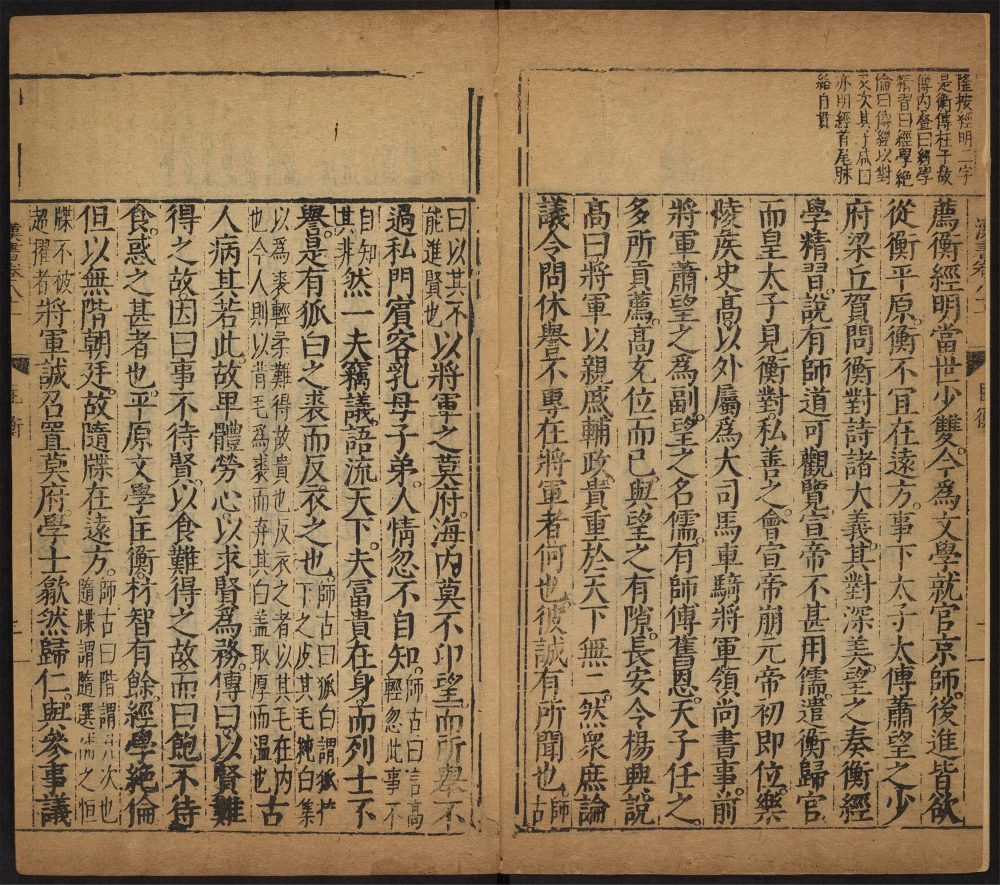 隆按經明二字
是衡傳柱子故
傳內疊曰經學
精習曰經學絕
倫曰傳經以對
又次其子咸曰
亦明經首尾脉
絡自貫
薦衡經明當世少雙今爲文學就官京師後進皆欲
從衡平原衡不宜在遠方事下太子太傅蕭望之少
府梁丘賀問衡對詩諸大義其對深美望之奏衡經
學精習說有師道可觀覽宣帝不甚用儒遣衡歸官
而皇太子見衡對私善之會宣帝崩元帝初即位樂
陵矦史髙以外屬爲大司馬車騎將軍領尚書事前
將軍蕭望之爲副望之名儒有師傅舊恩天子任之
多所貢薦髙充位而已與望之有隙長安令楊興說
髙曰將軍以親戚輔政貴重於天下無二然衆庶論
議令問休譽不專在將軍者何也彼誠有所聞也師古
曰以其不能進賢也以將軍之莫府海內莫不卬望而所舉不
過私門賓客乳母子弟人情忽不自知師古曰言高輕忽此事不
自知其非然一夫竊議語流天下夫富貴在身而列士不
譽是有狐白之裘而反衣之也師古曰狐白謂狐掖下之皮其毛純白集
以爲裘輕柔難得故貴也反衣之者以其毛在內也今人則以背毛爲裘而弃其白蓋取厚而溫也古
人病其若此故卑體勞心以求賢爲務傳曰以賢難
得之故因曰事不待賢以食難得之故而曰飽不待
食惑之甚者也平原文學匡衡材智有餘經學絕倫
但以無階朝廷故隨牒在遠方師古曰階謂升次也隨牒謂隨選補之恒
牒不被超擢者將軍誠召置莫府學士歙然歸仁與參事議